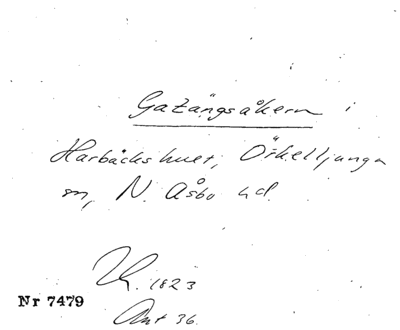 Gatängsåkern i
Harbäckshult, Örkelljunga
sn, N. Åsbo hd.
1823
Nr 7479
Ant 36.